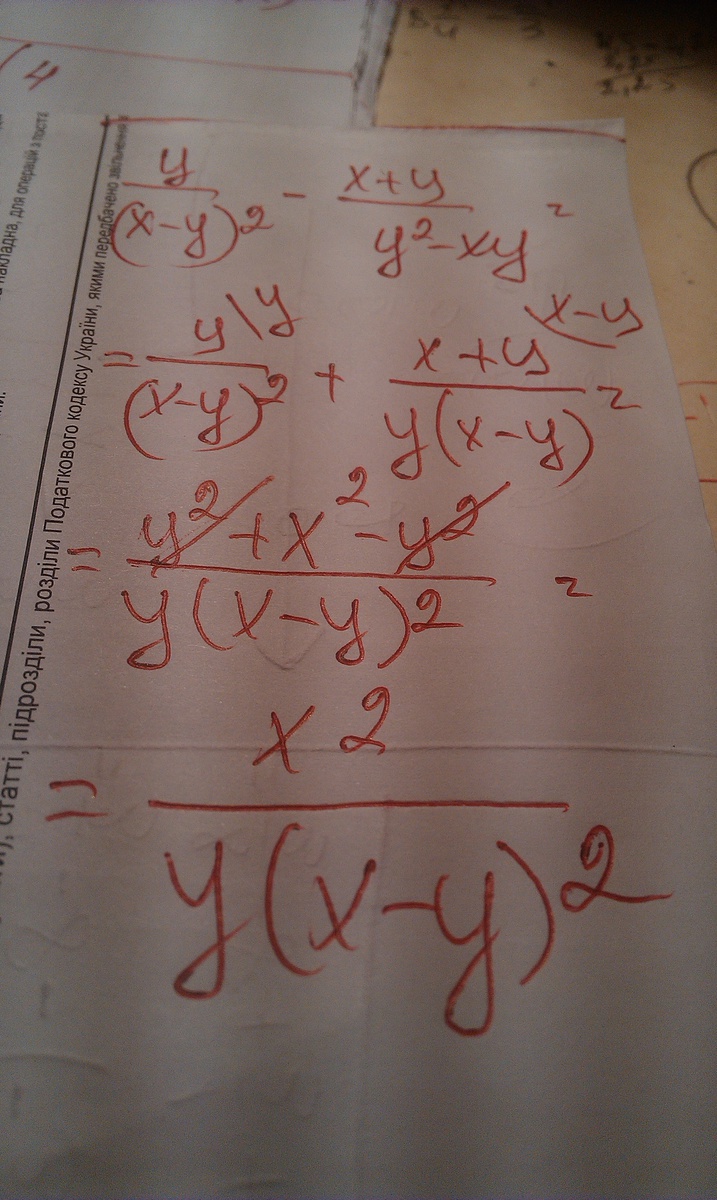 (4
y/(x-y)2 - x+y/y2-xy =
= y\y/(x-y)2 + x+y(x-y/y(x-y) =
= y2+x2-y2/y(x-y)2 =
= x2/y(x-y)2
статті, підрозділи, розділи Податкового кодексу України, якими передбачено звільнення
накладна, для операцій з поста